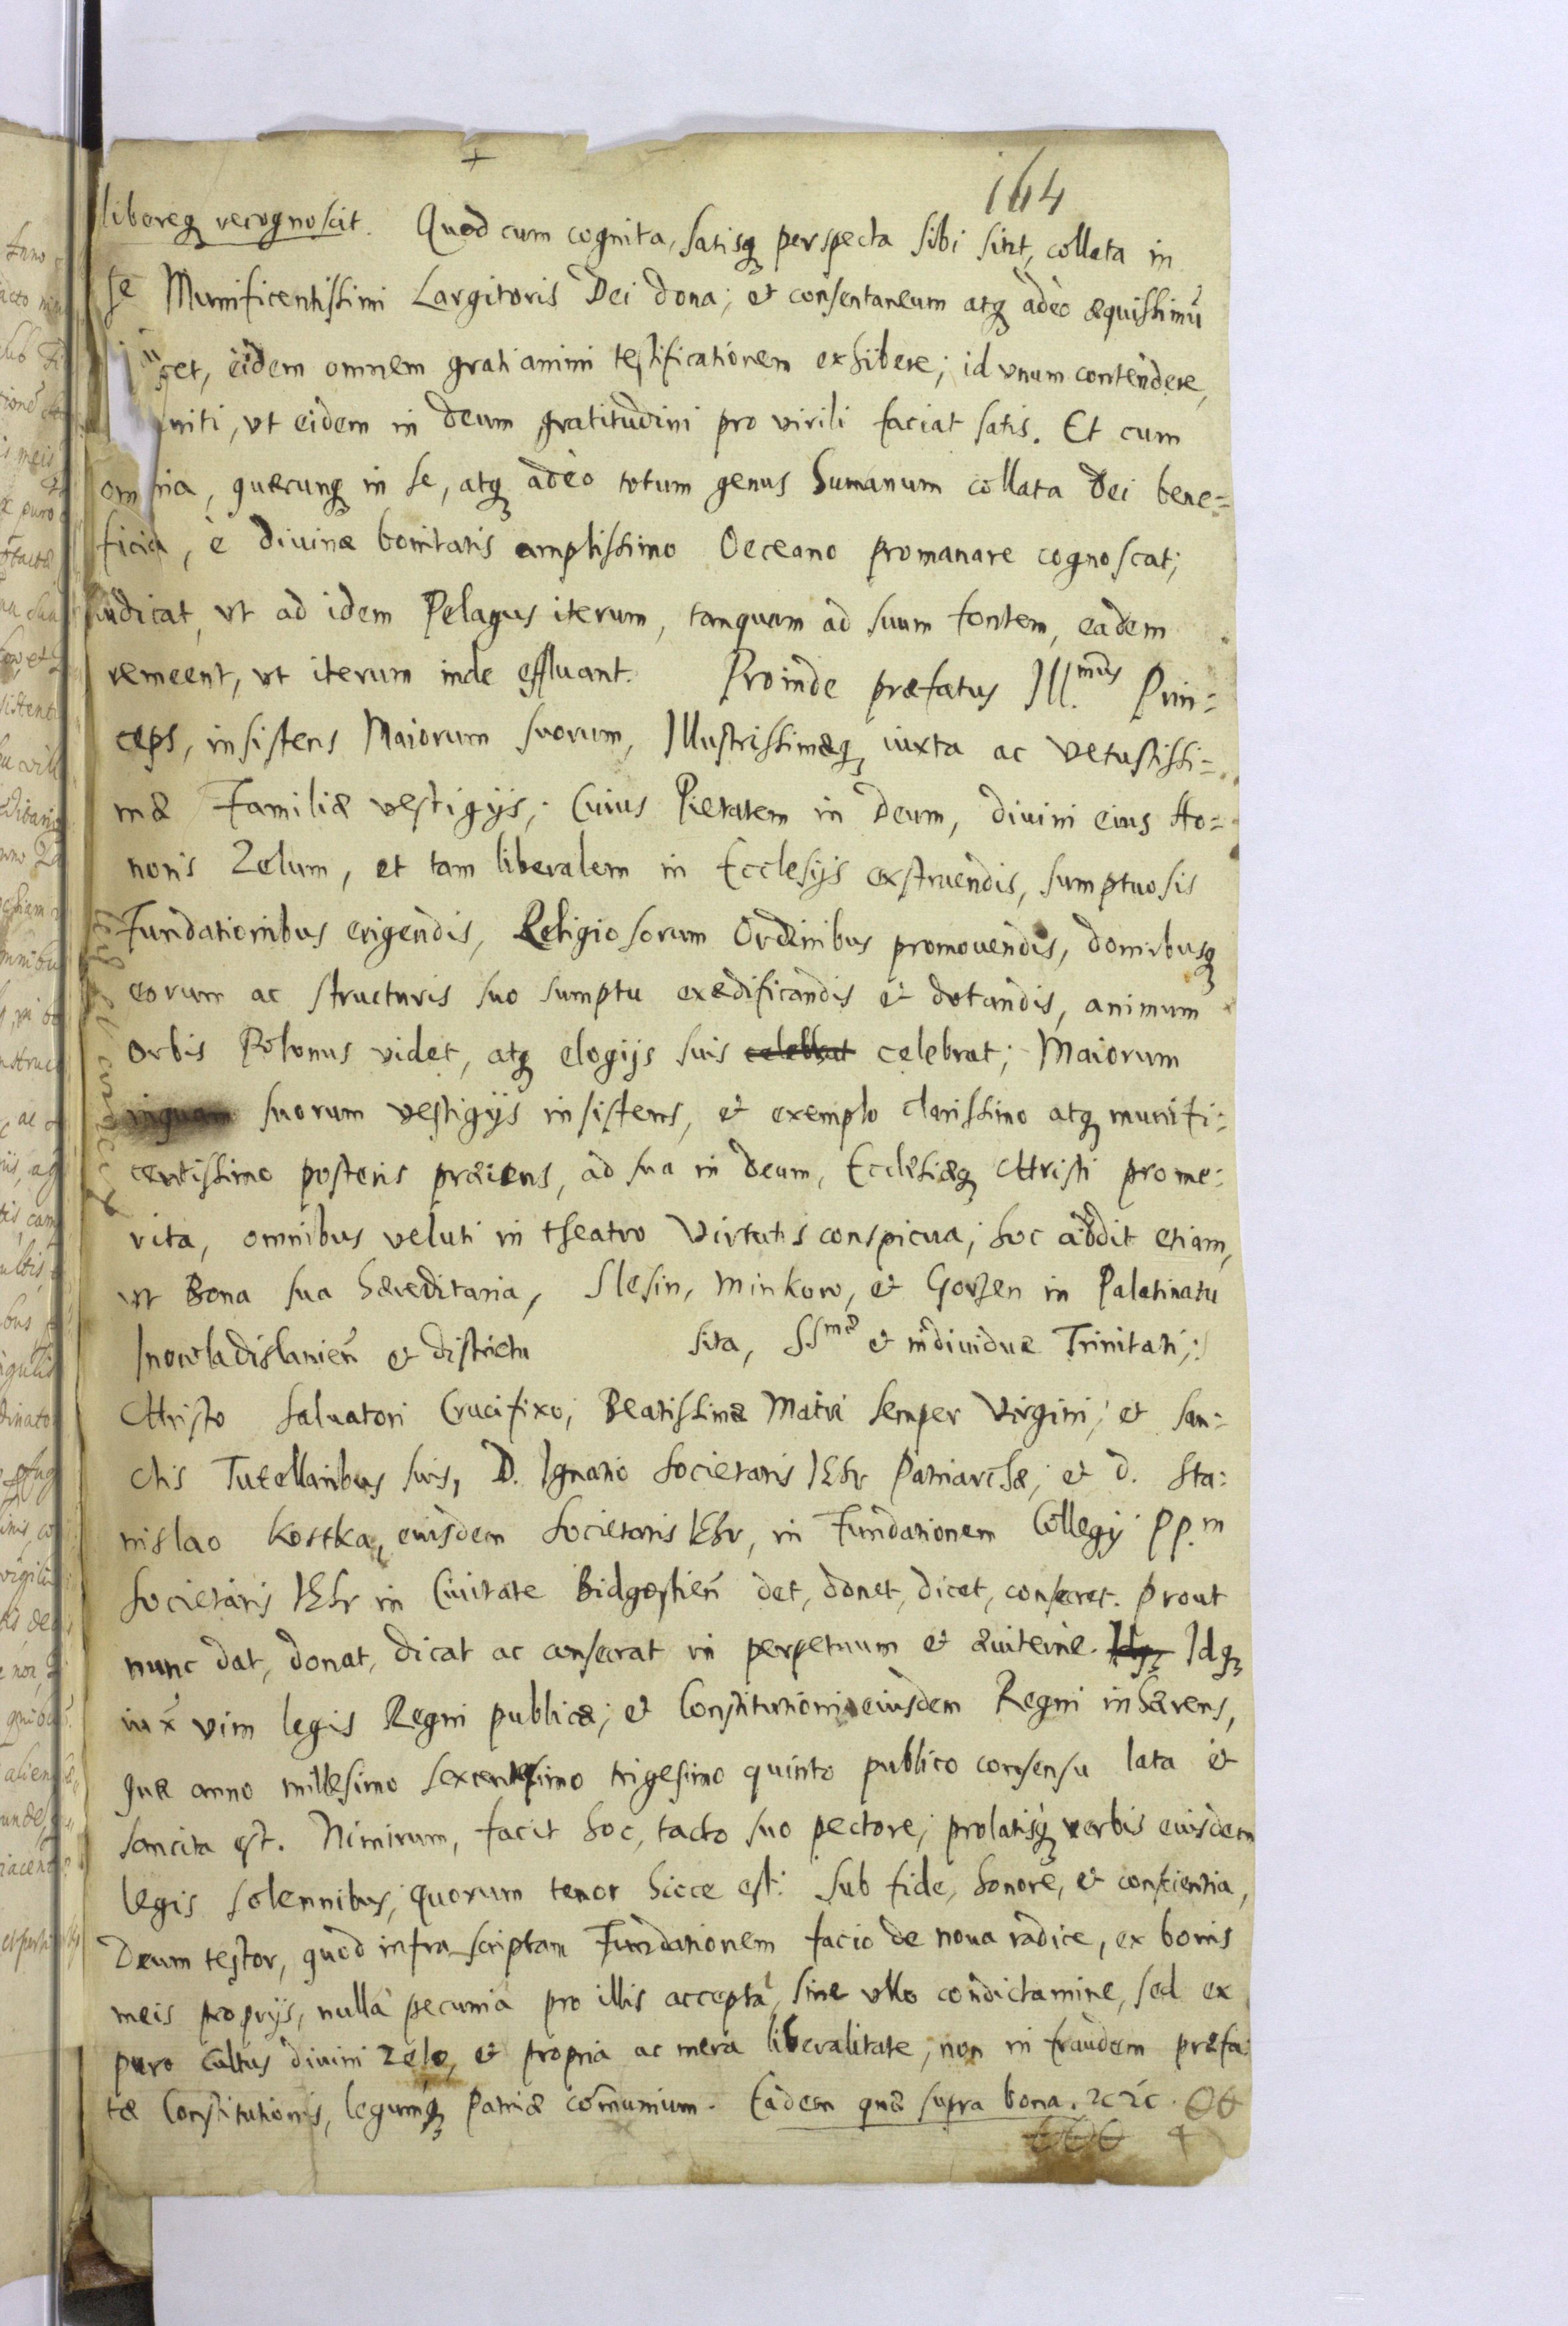 +
164
libereq́ recognoscit. Quod cum cognita, satisq́ perspecta sibi sint, collata in
se Munificentissimi Largitoris Dei dona; et consentaneum atq́ adeò æquissimū
cet, eidem omnem grati animi testificationem exhibere; id vnum contendere,
niti, vt eidem in Deum gratitudini pro virili faciat satis. Et cum
omnia, quæcunq́ in se, atq́ adeò totum genus humanum collata Dei bene=
ficia, è diuinæ bonitatis amplissimo Oceano promanare cognoscat;
iudicat, vt ad idem Pelagus iterum, tanquam ad suum fontem, eadem
remeent, vt iterum inde effluant. Proinde præfatus Ill.mus Prin=
ceps, insistens Maiorum suorum, Illustrissimæq́ iuxta ac vetustissi=
mæ Familiæ vestigijs; Cuius Pietatem in Deum, diuini eius Ho=
noris Zelum, et tam liberalem in Ecclesijs exstruendis, sumptuosis
Fundationibus erigendis, Religiosorum Ordinibus promouendis, domibusq́
eorum ac structuris suo sumptu exædificandis et dotandis, animum
Orbis Polonus videt, atq́ elogijs suis celebrat celebrat; Maiorum
inquam suorum vestigijs insistens, et exemplo clarissimo atq́ munifi=
centissimo posteris præiens, ad sua in Deum, Ecclesiæq́ Christi prome=
rita, omnibus veluti in theatro Virtutis conspicua; hoc addit etiam,
vt Bona sua hæreditaria, Slesin, Minkow, et Gorzen in Palatinatu
Inowladislauien̄ et districtu sita, SSmæ et indiuiduæ Trinitati;
Christo Saluatori Crucifixo; Beatissimæ Matri semper Virgini; et San=
ctis Tutellaribus suis, D. Ignatio Societatis IESv Patriarchæ; et D. Sta=
nislao Kostka, eiusdem Societatis IESv, in Fundationem Collegij PP.m
Societatis IESv in Ciuitate Bidgostien̄ det, donet, dicet, consecret. Prout
nunc dat, donat, dicat ac consecrat in perpetuum et æuiternè. Idq́ Idq́
iux̄ vim legis Regni publicæ; et Constitutioni eiusdem Regni inhærens,
quæ anno millesimo sexcentesimo trigesimo quinto publico consensu lata et
sancita est. Nimirum, facit hoc, tacto suo pectore; prolatisq́ verbis eiusdem
legis solennibus, quorum tenor hicce est: Sub fide, honore, et conscientia,
Deum testor, quod infra scriptam Fundationem facio de noua radice, ex bonis
meis proprijs, nullâ pecuniâ pro illis acceptâ, sine vllo condictamine, sed ex
puro cultus diuini zelo, et propria ac mera liberalitate, non in fraudem præfa
tæ Constitutionis, legumq́ Patriæ com̄unium. Eadem quæ supra bona. ꝛc ꝛc.